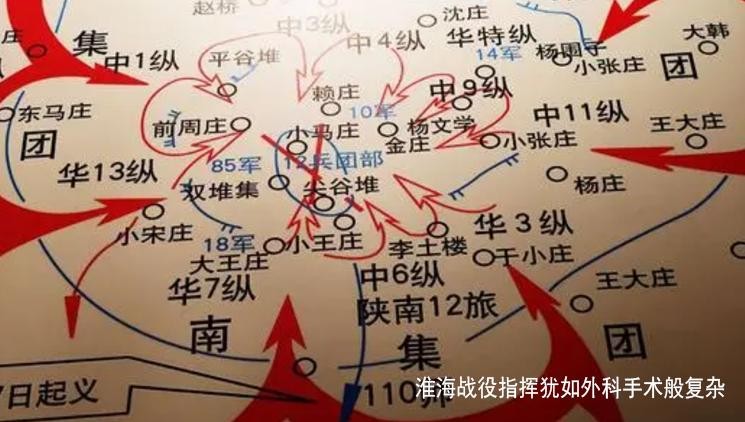 赵桥
中3纵
沈庄
集
中1纵
平谷堆
中4纵
华特纵
14军
杨围子
小张庄
大韩
团
赖庄
10军
中9纵
东马庄
前周庄
小马庄
杨文学
中11纵
王大庄
团
金庄
小张庄
华13纵
85军
12兵团部
双堆集
尖谷堆
杨庄
小宋庄
18军
小王庄
李土楼
华3纵
大王庄
于小庄
华7纵
中6纵
王大庄
陕南12旅
南
集
团
日起义
110师
淮海战役指挥犹如外科手术般复杂